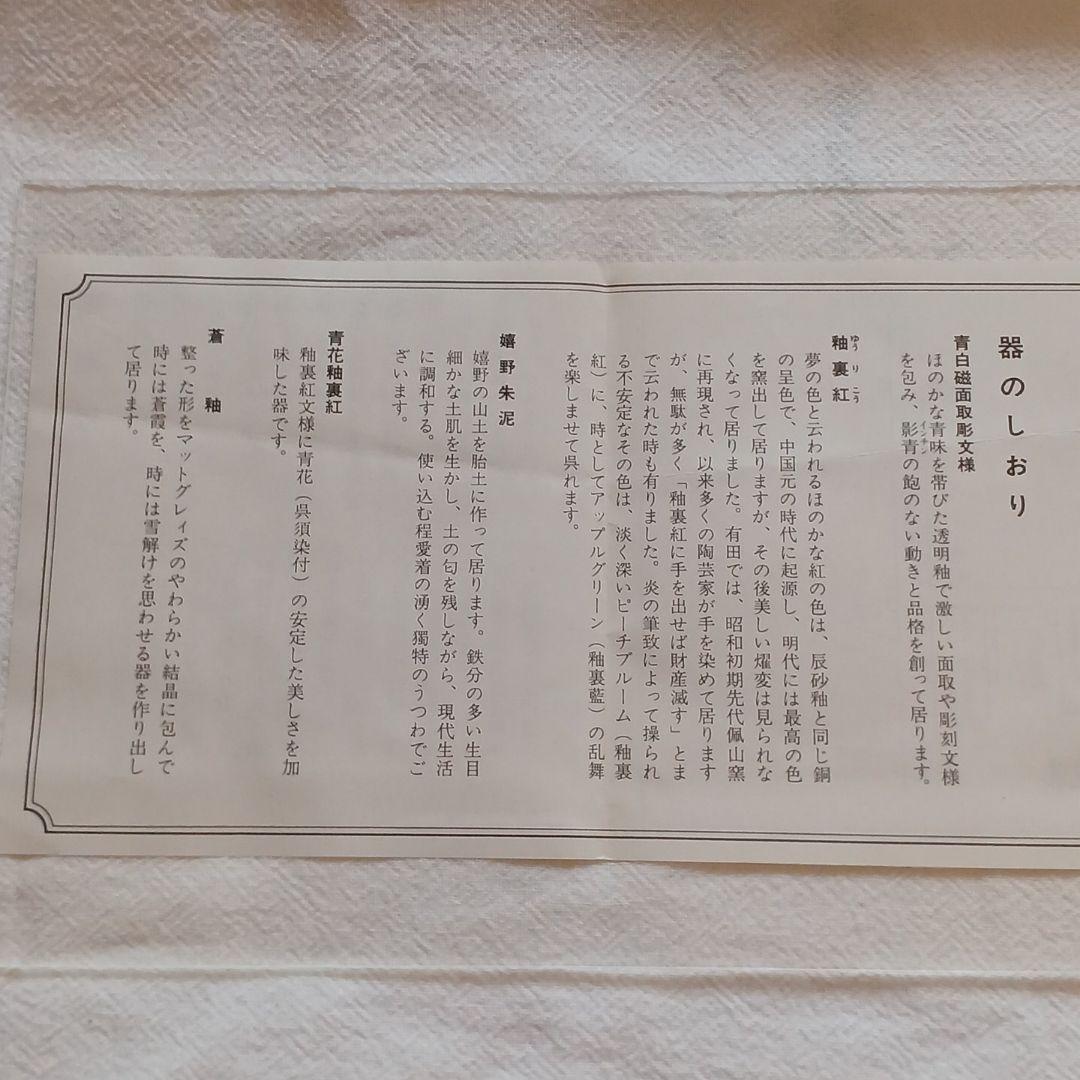 器のしおり
青白磁面取彫文様
ほのかな青味を帯びた透明釉で激しい面取や彫刻文様
を包み、影青の飽のない動きと品格を創って居ります。
インチン
釉裏紅
ゆうりこう
夢の色と云われるほのかな紅の色は、辰砂釉と同じ銅
の呈色で、中国元の時代に起源し、明代には最高の色
を窯出して居りますが、その後美しい燿変は見られな
くなって居りました。有田では、昭和初期先代佩山窯
に再現され、以来多くの陶芸家が手を染めて居ります
が、無駄が多く「釉裏紅に手を出せば財産滅す」とま
で云われた時も有りました。炎の筆致によって操られ
る不安定なその色は、淡く深いピーチブルーム（釉裏
紅）に、時としてアップルグリーン（釉裏藍）の乱舞
を楽しませて呉れます。
嬉野朱泥
嬉野の山土を胎土に作って居ります。鉄分の多い生目
細かな土肌を生かし、土の匂を残しながら、現代生活
に調和する。使い込む程愛着の湧く獨特のうつわでご
ざいます。
青花釉裏紅
釉裏紅文様に青花（呉須染付）の安定した美しさを加
味した器です。
蒼釉
整った形をマットグレィズのやわらかい結晶に包んで
時には蒼霞を、時には雪解けを思わせる器を作り出し
て居ります。